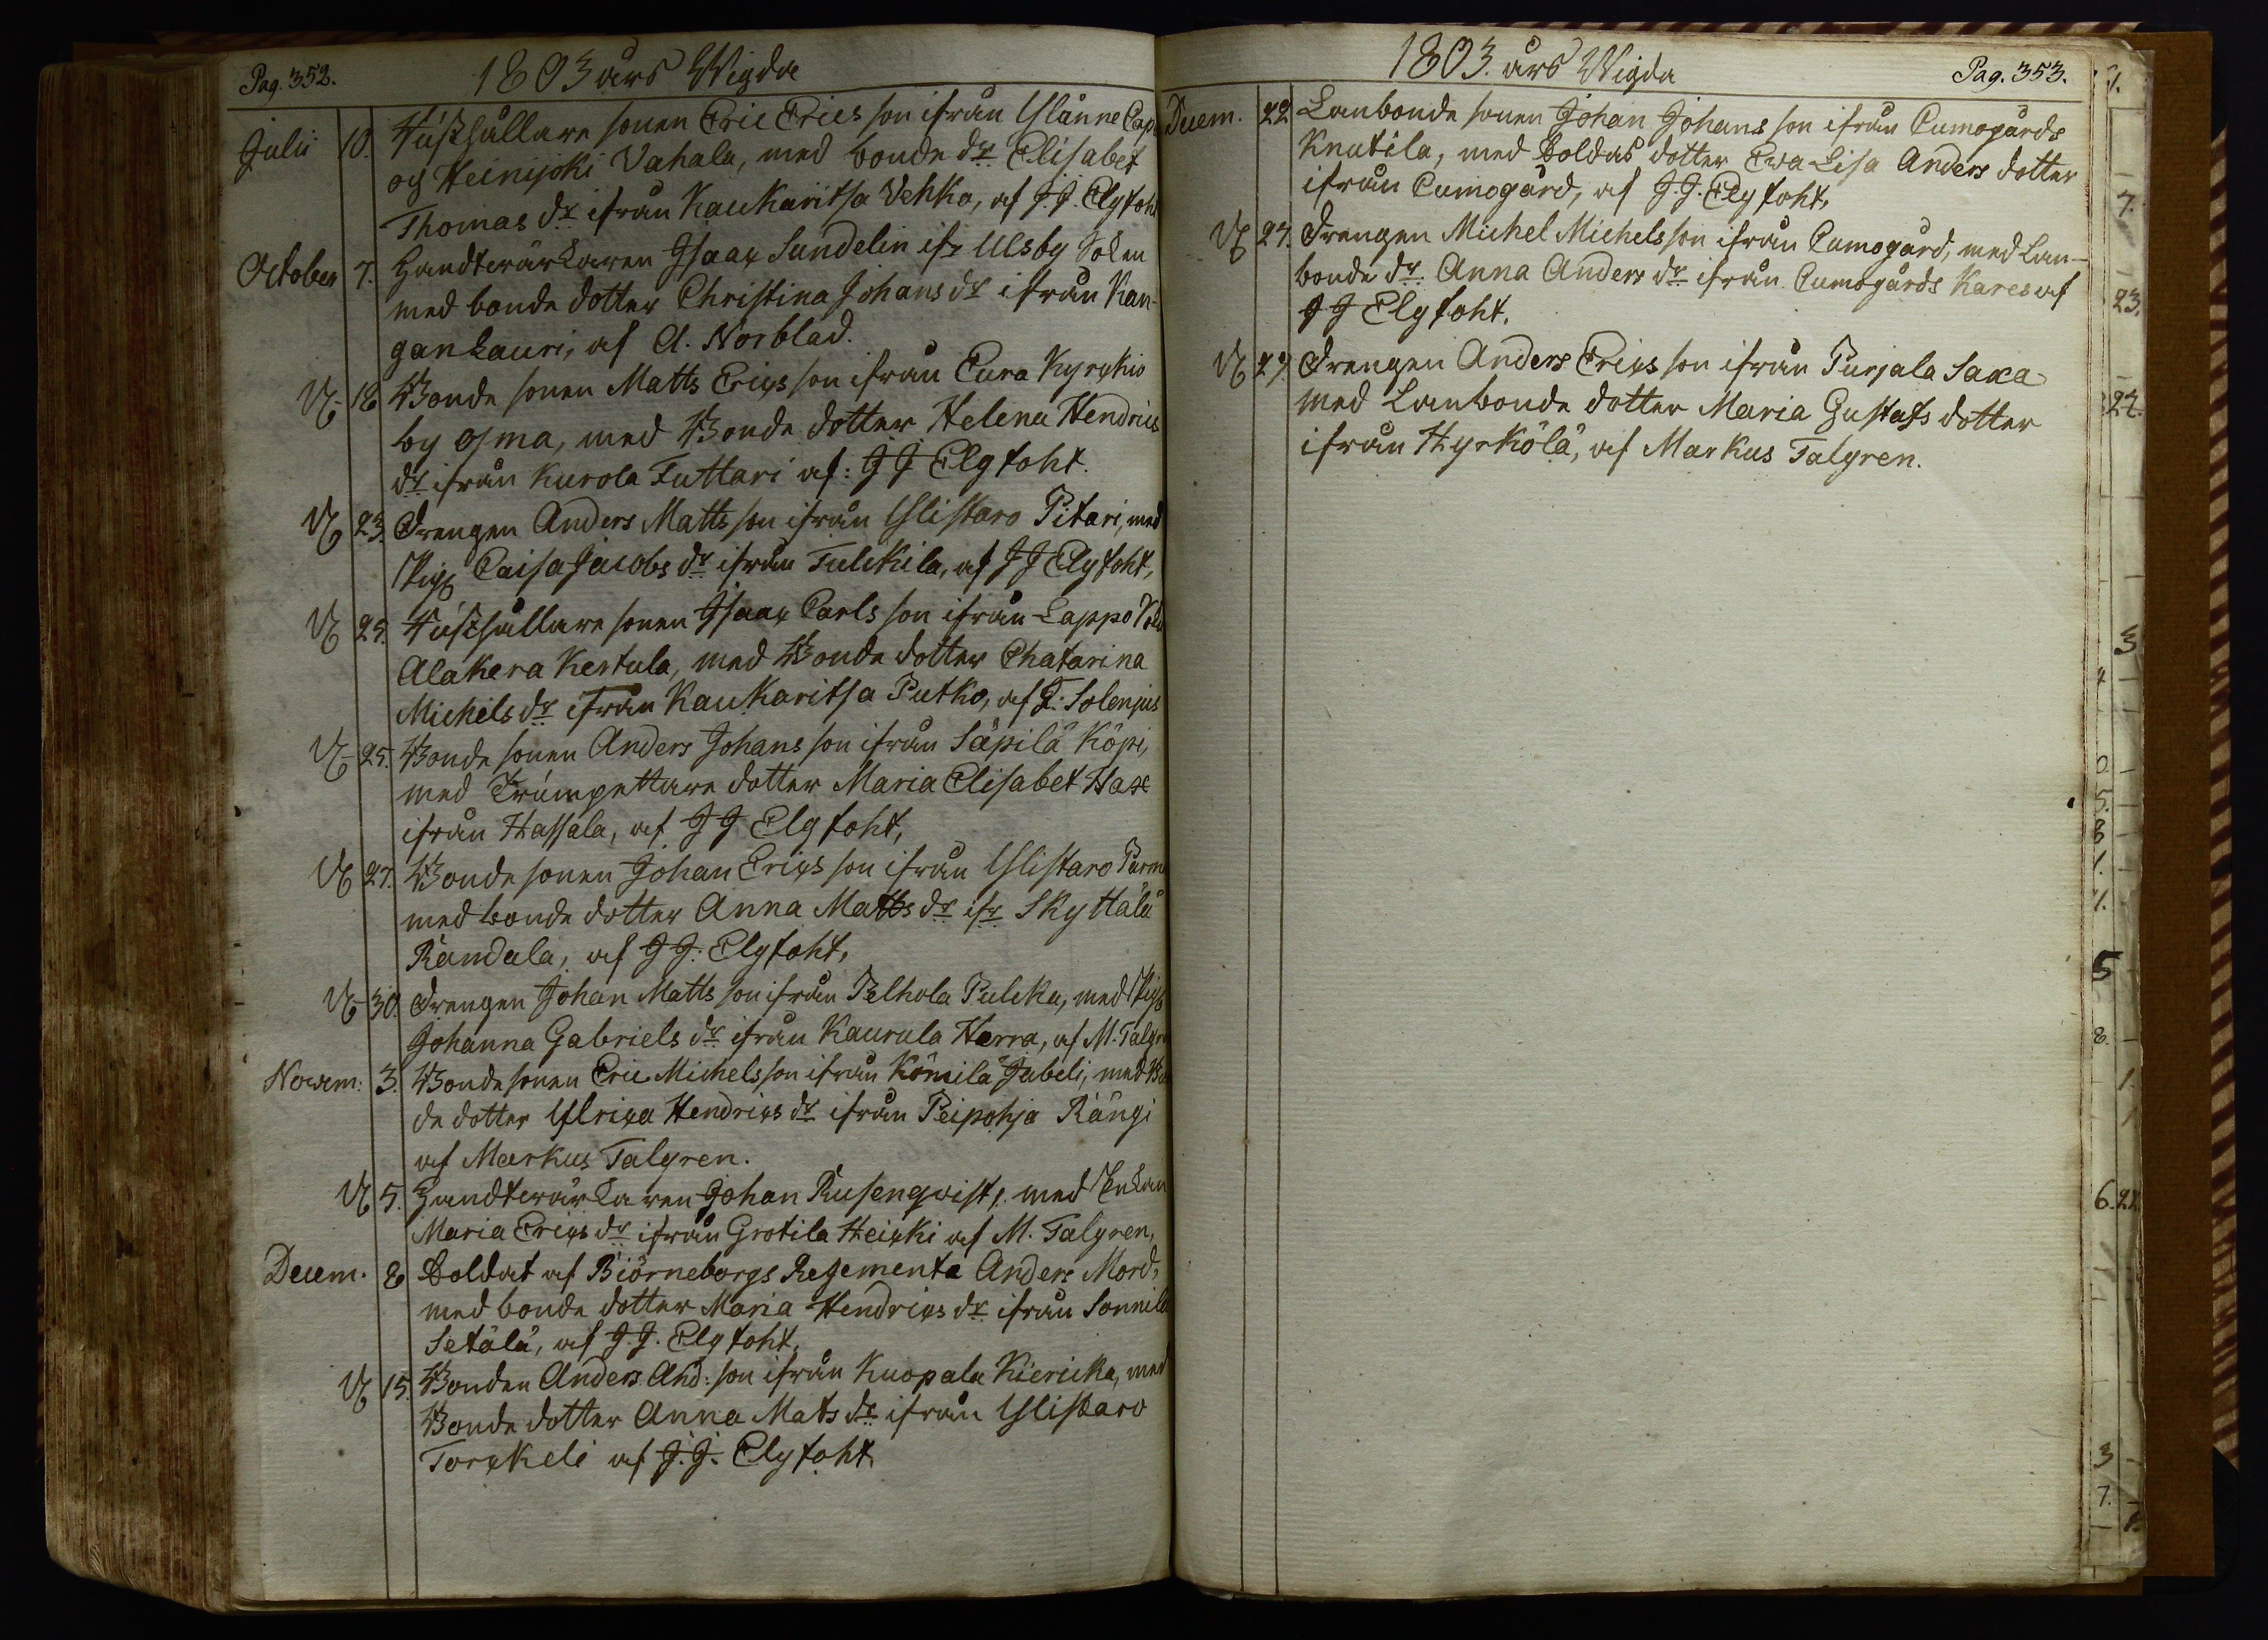 Pag. 352.
1803 års Wigda
Julii 10. Rusthållare sonen Eric Erics son ifrån Yläinne Cap
og Heinijoki Vahala, med bonde dr. Elisabet
Thomas dr. ifrån Kaukaritsa Vehko, af J. J. Elgfoht
October 7. Handtwärkaren Isaac Sundelin ifr Ulsby Sokn
med bonde dotter Christina Johans dr ifrån Kan-
gan Lauri, af A. Norblad.
18 Bonde sonen Matts Erics son ifrån Eura Kyrckio
by Ojma, med Bonde dotter Helena Hendrics
dr ifrån Kurola Tuttari af: J J Elgfoht.
23. Drengen Anders Matts son ifrån Ylistaro Pitari, med
Pig: Caisa Jacobs dr ifrån Tulckila, af J J Elgfoht,
25. Rusthållare sonen Isaac Carls son ifrån Lappo
Alakera Kertula, med Bonde dotter Chatarina
Michels dr ifrån Kaukaritsa Putko, af F. Solenius
25. Bonde sonen Anders Johans son ifrån Säpilä Köpi,
med Trumpettare dotter Maria Elisabet Hax
ifrån Hassala, af J J Elgfoht,
27. Bonde sonen Johan Erics son ifrån Ylistaro
med bonde dotter Anna Matts dr ifr Skyttälä
Randala, af J J. Elgfoht,
30. Drengen Johan Matts son ifrån Pelhola Pulcka, med Pig:
Johanna Gabriels dr ifrån Kaurula Herra, af M. Talgren
Novem: 3. Bonde sonen Eric Michels son ifrån Kömilä Jubeli, med Bon
de dotter Ulrica Hendrics dr ifrån Peipohja Rängi
af Markus Talgren.
5. Handtwärkaren Johan Rusenqwist, med Enkan
Maria Erics dr ifrån Grotila Heicki af M. Talgren,
Decem. 8 Soldat af Biörneborgs Regemente Anders Mord,
med bonde dotter Maria Hendrics dr ifrån Sonnila
Setälä, af J. J. Elgfoht.
15. Bonden Anders And: son ifrån Kuopala Kiericka, med
Bonde dotter Anna Mats dr ifrån Ylistaro
Torckeli af J. J. Elgfoht.
1803. års Wigda
Pag. 353.
Decem. 22 Lanbonde sonen Johan Johans son ifrån Cumogårds
Knutila, med Soldas dotter Ewa Lisa Anders dotter
ifrån Cumogård, af J. J. Elgfoht,
27. Drengen Michel Michels son ifrån Cumogård, med Lan-
bonde dr. Anna Anders dr ifrån Cumogårds Kares af
J J Elgfoht.
27. Drengen Anders Erics son ifrån Purjala Saxa
med Lanbonde dotter Maria Gustafs dotter
ifrån Hyrkölä, af Markus Talgren.
1.
7.
23.
27.
3
5.
8
1.
1.
5
8.
1.
1
6. 22.
3
7.